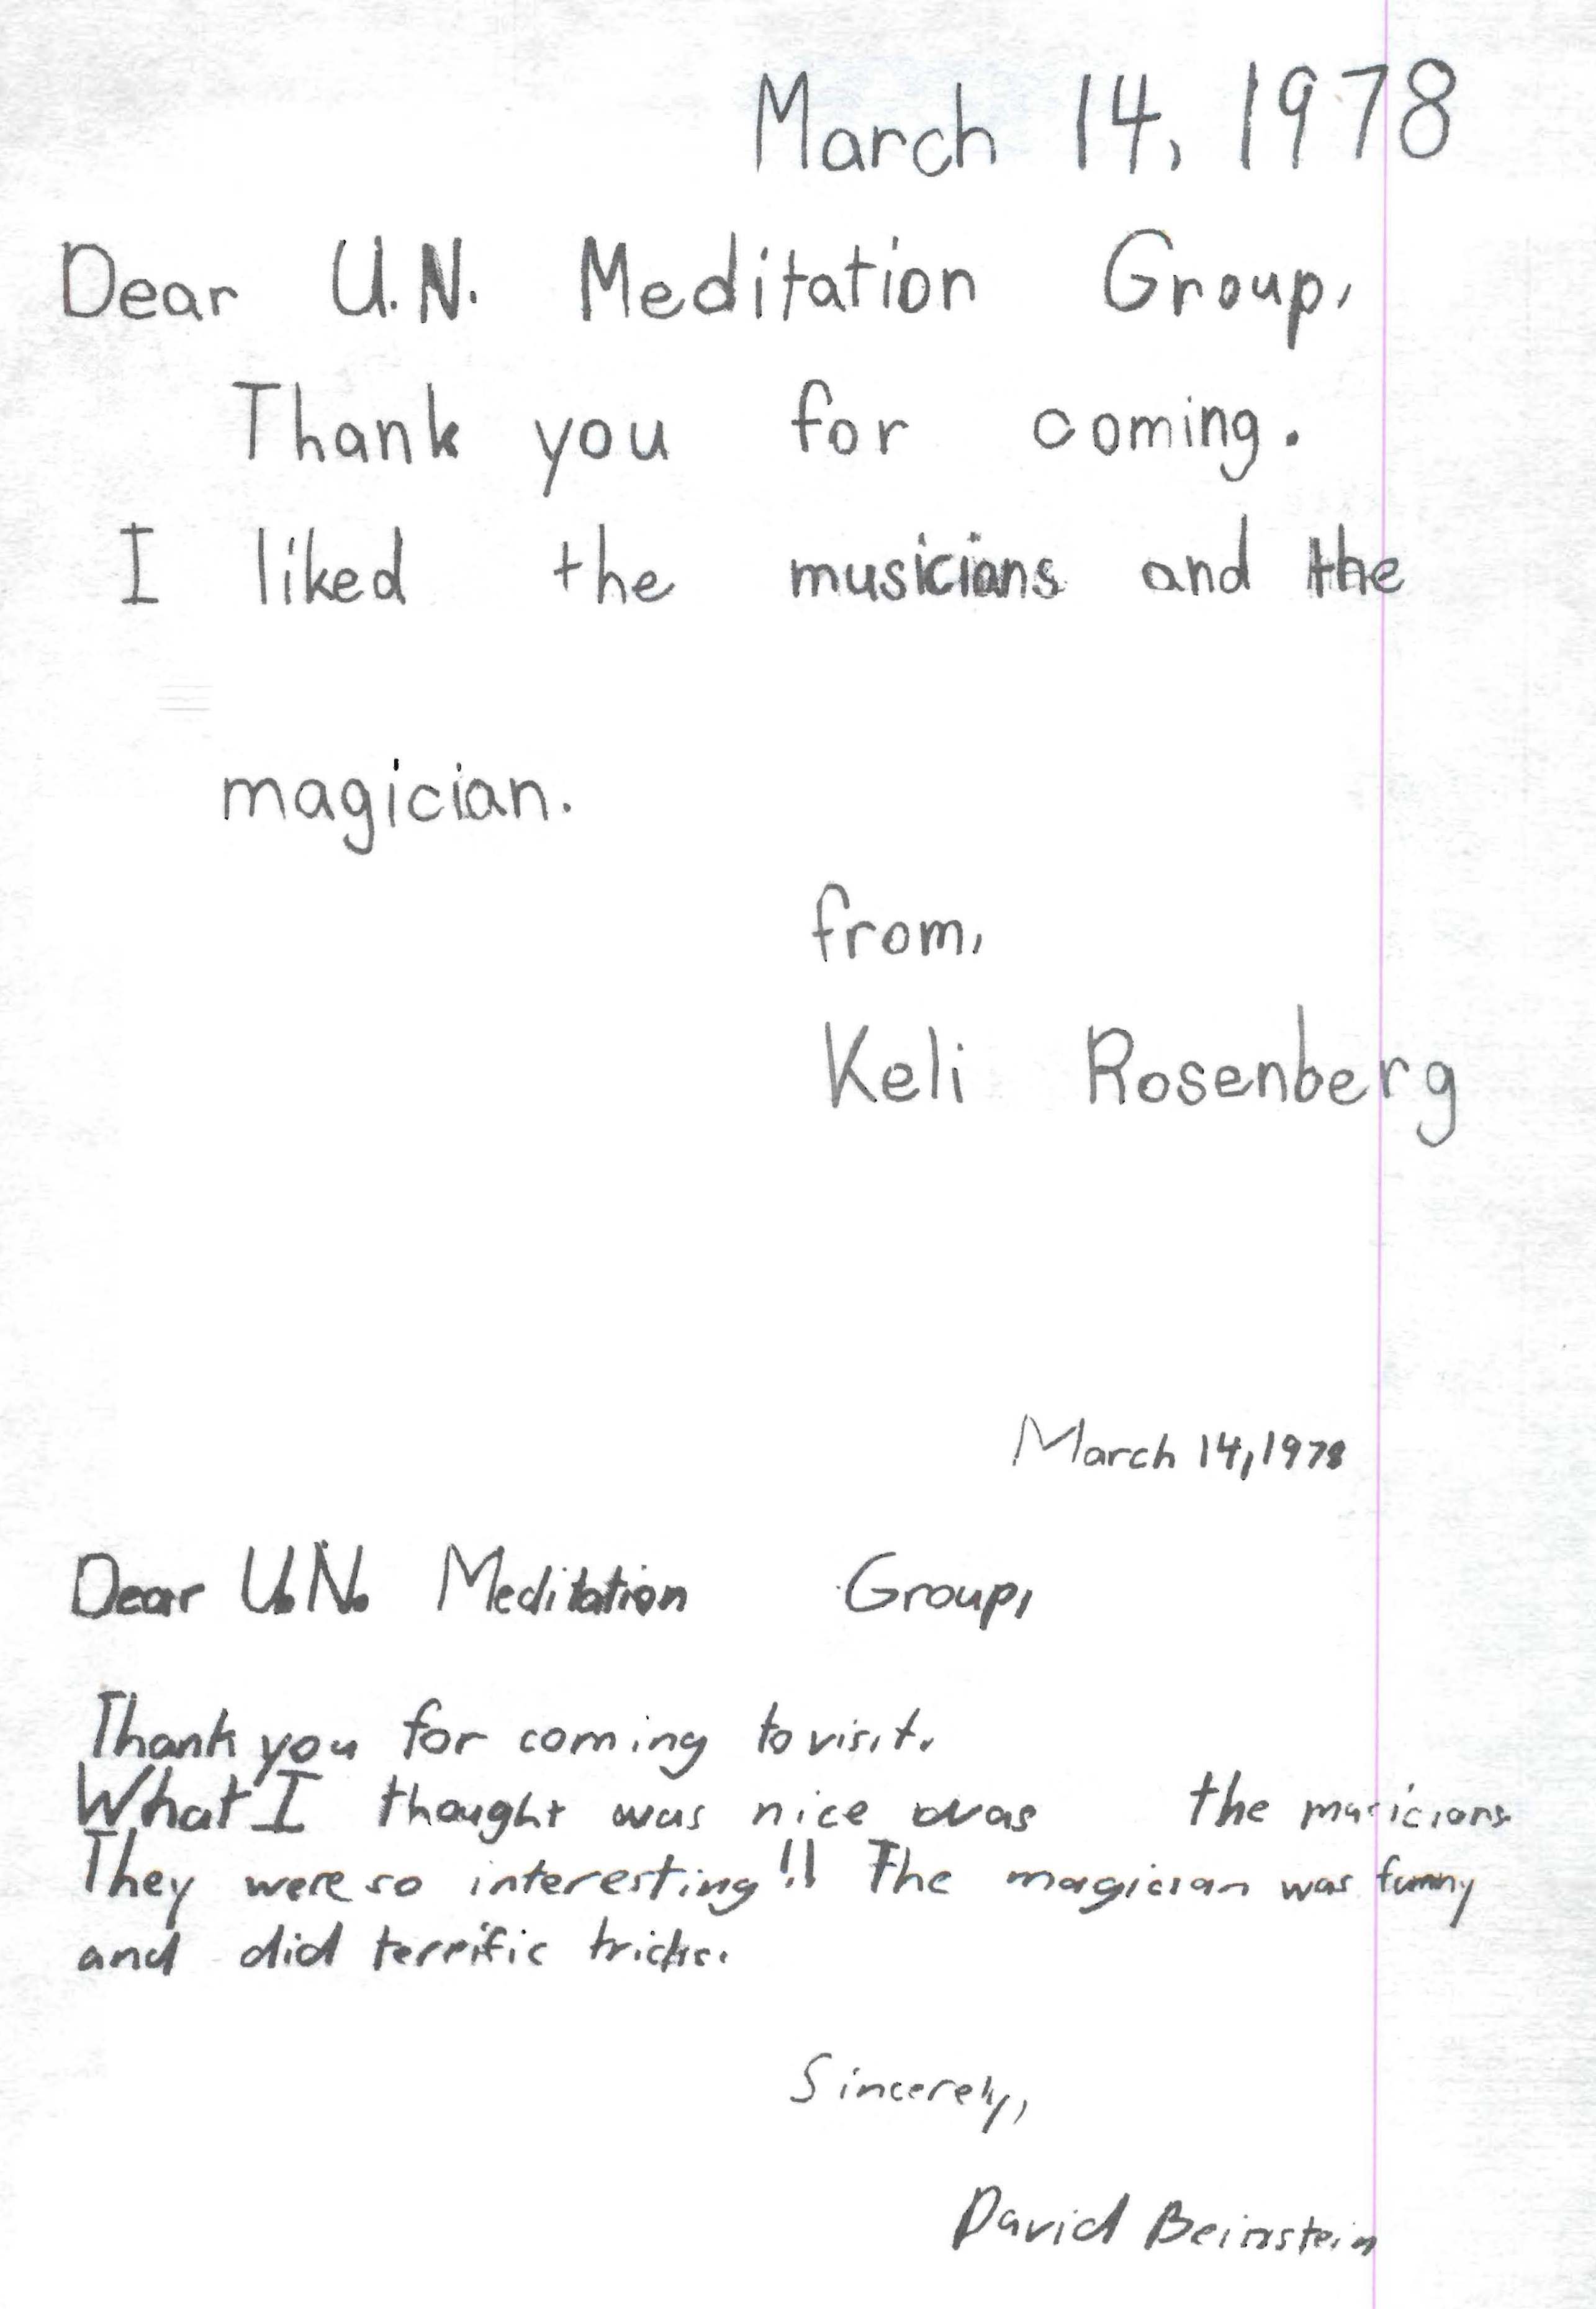 March 14, 1978
Dear U.N. Meditation Group,
Thank you for coming.
I liked the musicians and the
magician.
from,
Keli Rosenberg
March 14, 1978
Dear U.N. Meditation Group,
Thank you for coming to visit.
What I thought was nice was the musicians
They were so interesting!! The magician was funny
and did terrific tricks.
Sincerely,
David Beinstein